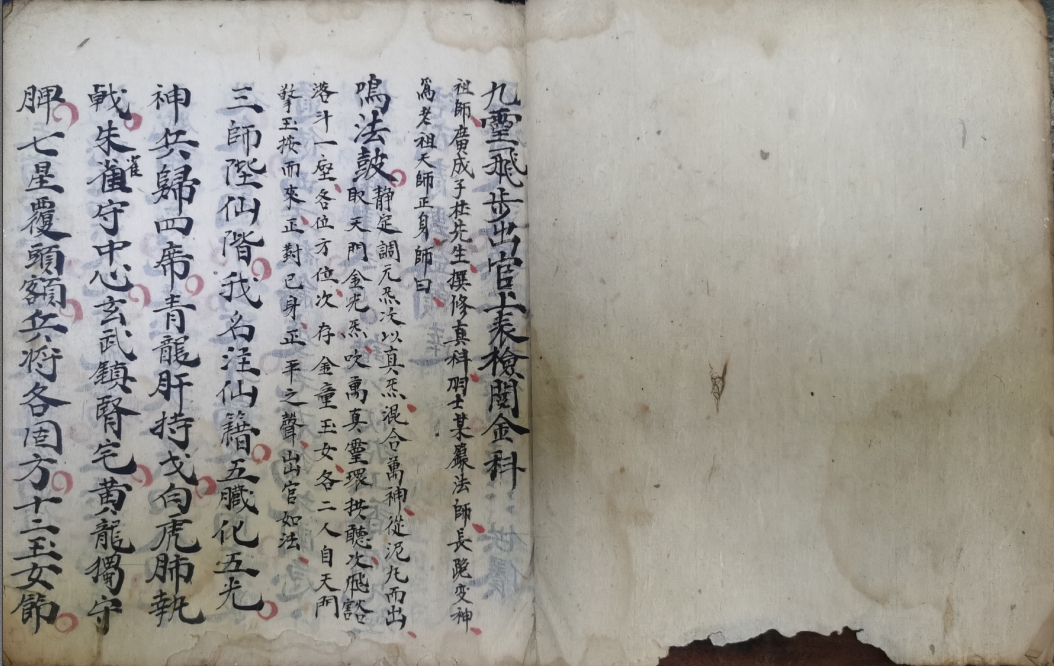 九靈飛步出官上表檢閱金科
祖師廣成子杜先生撰修真科羽士某籙法師長跪变神
為老祖天師正身師曰
鳴法皷靜定調元炁次以真炁混合萬神從泥九而出
取天門金光炁吹萬真靈環拱聽次飛谿
落斗一座各位方位次存金童玉女各二人自天門
擎玉按而來正對己身正平之聲出官如法
三師陛仙階我名注仙籍五臟化五光
神兵歸四席青龍肝持戈白虎肺執
戟朱雀雀守中心玄武鎮腎宅黄龍獨守
脾七星覆頭額兵將各固方十二玉女節